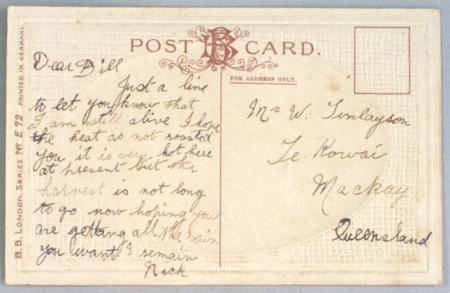 POST B CARD.
FOR ADDRESS ONLY.
B.B. LONDON. SERIES No E 72 PRINTED IN GERMANY.
Dear Bill
Just a line
to let you know that
I am still alive I hope
the heat as not roasted
you it is very hot here
at present but the
harvest is not long
to go now hoping you
are getting all the rain
you want I remain
Nick
Mr W. Finlayson
Te. Kowai
Mackay
Queensland